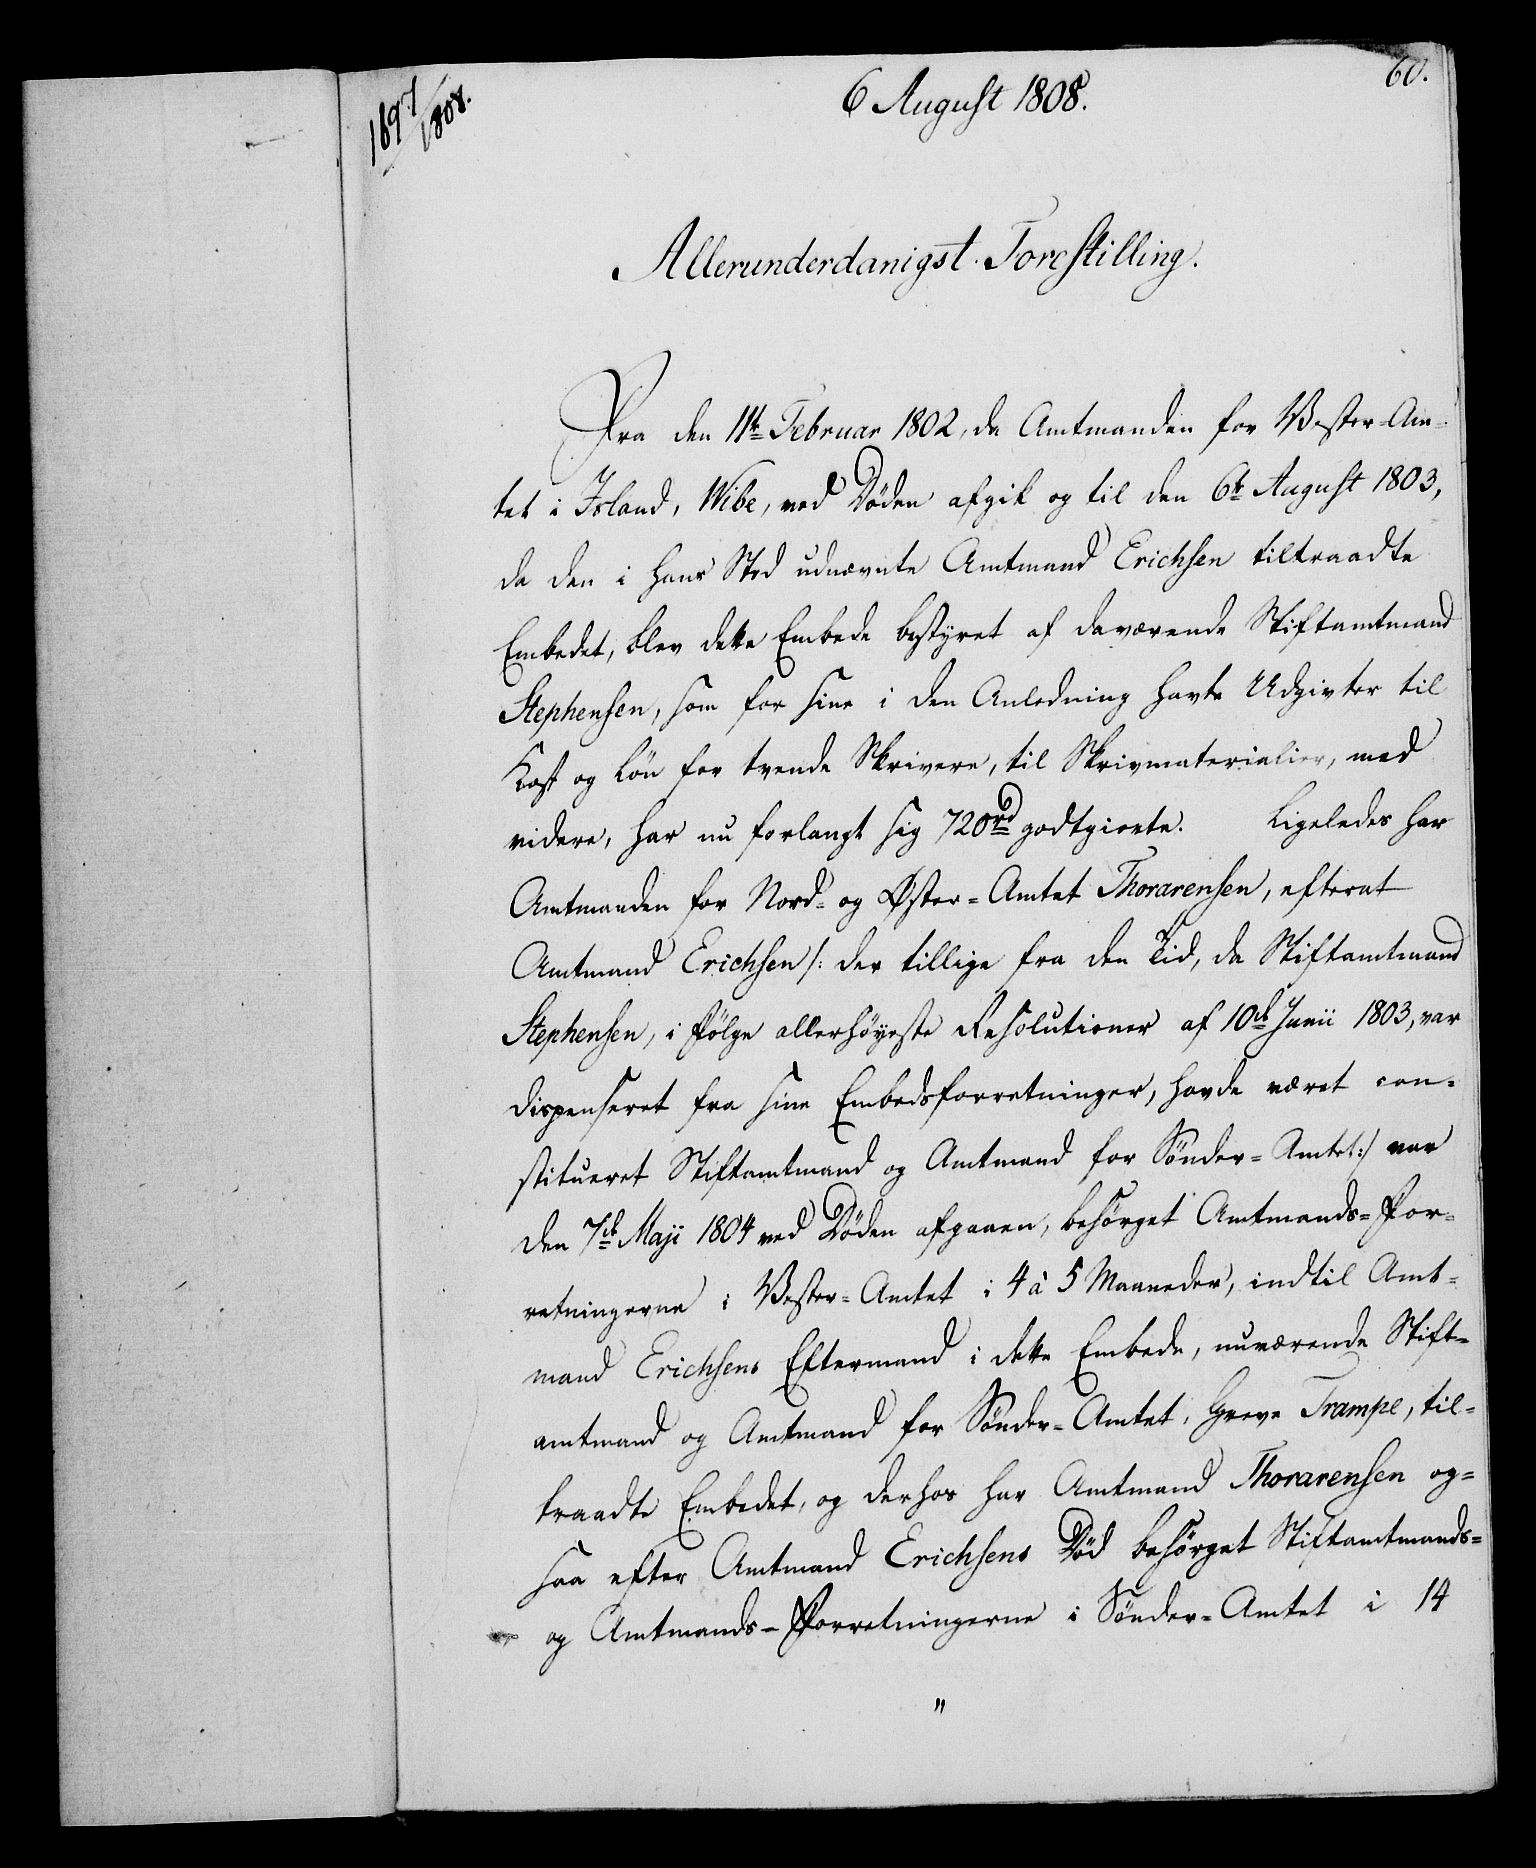 60.
1697/1808.
6 August 1808.
Allerunderdanigst Forestilling.
Fra den 11te Februar 1802, da Amtmanden for Vester-Am-
tet i Island, Wibe, ved Döden afgik og til den 6te August 1803,
da den i hans Sted udnævnte Amtmand Erichsen tiltraadte
Embedet, blev dette Embede bestyret af daværende Stiftamtmand
Stephensen, som for sine i den Anledning havte Udgivter til
Kost og Løn for tvende Skrivere, til Skrivmaterialier, med
videre, har nu forlangt sig 720 rd godtgiorte. Ligeledes har
Amtmanden for Nord- og Øster-Amtet Thorarensen, efterat
Amtmand Erichsen /: der tillige fra den Tid, da Stiftamtmand
Stephensen, i Følge allerhöyeste Resolutioner af 10de Junii 1803, var
dispenseret fra sine Embedsforretninger, havde været con-
stitueret Stiftamtmand og Amtmand for Sönder-Amtet :/ var
den 7de Maji 1804 ved Döden afgaaen, besörget Amtmands-For-
retningerne i Vester-Amtet i 4 à 5 Maaneder, indtil Amt-
mand Erichsens Eftermand i dette Embede, nuværende Stift-
amtmand og Amtmand for Sönder-Amtet, Greve Trampe, til-
traadte Embedet, og derhos har Amtmand Thorarensen og-
saa efter Amtmand Erichsens Död besörget Stiftamtmands-
og Amtmands-Forretningerne i Sönder-Amtet i 14
"